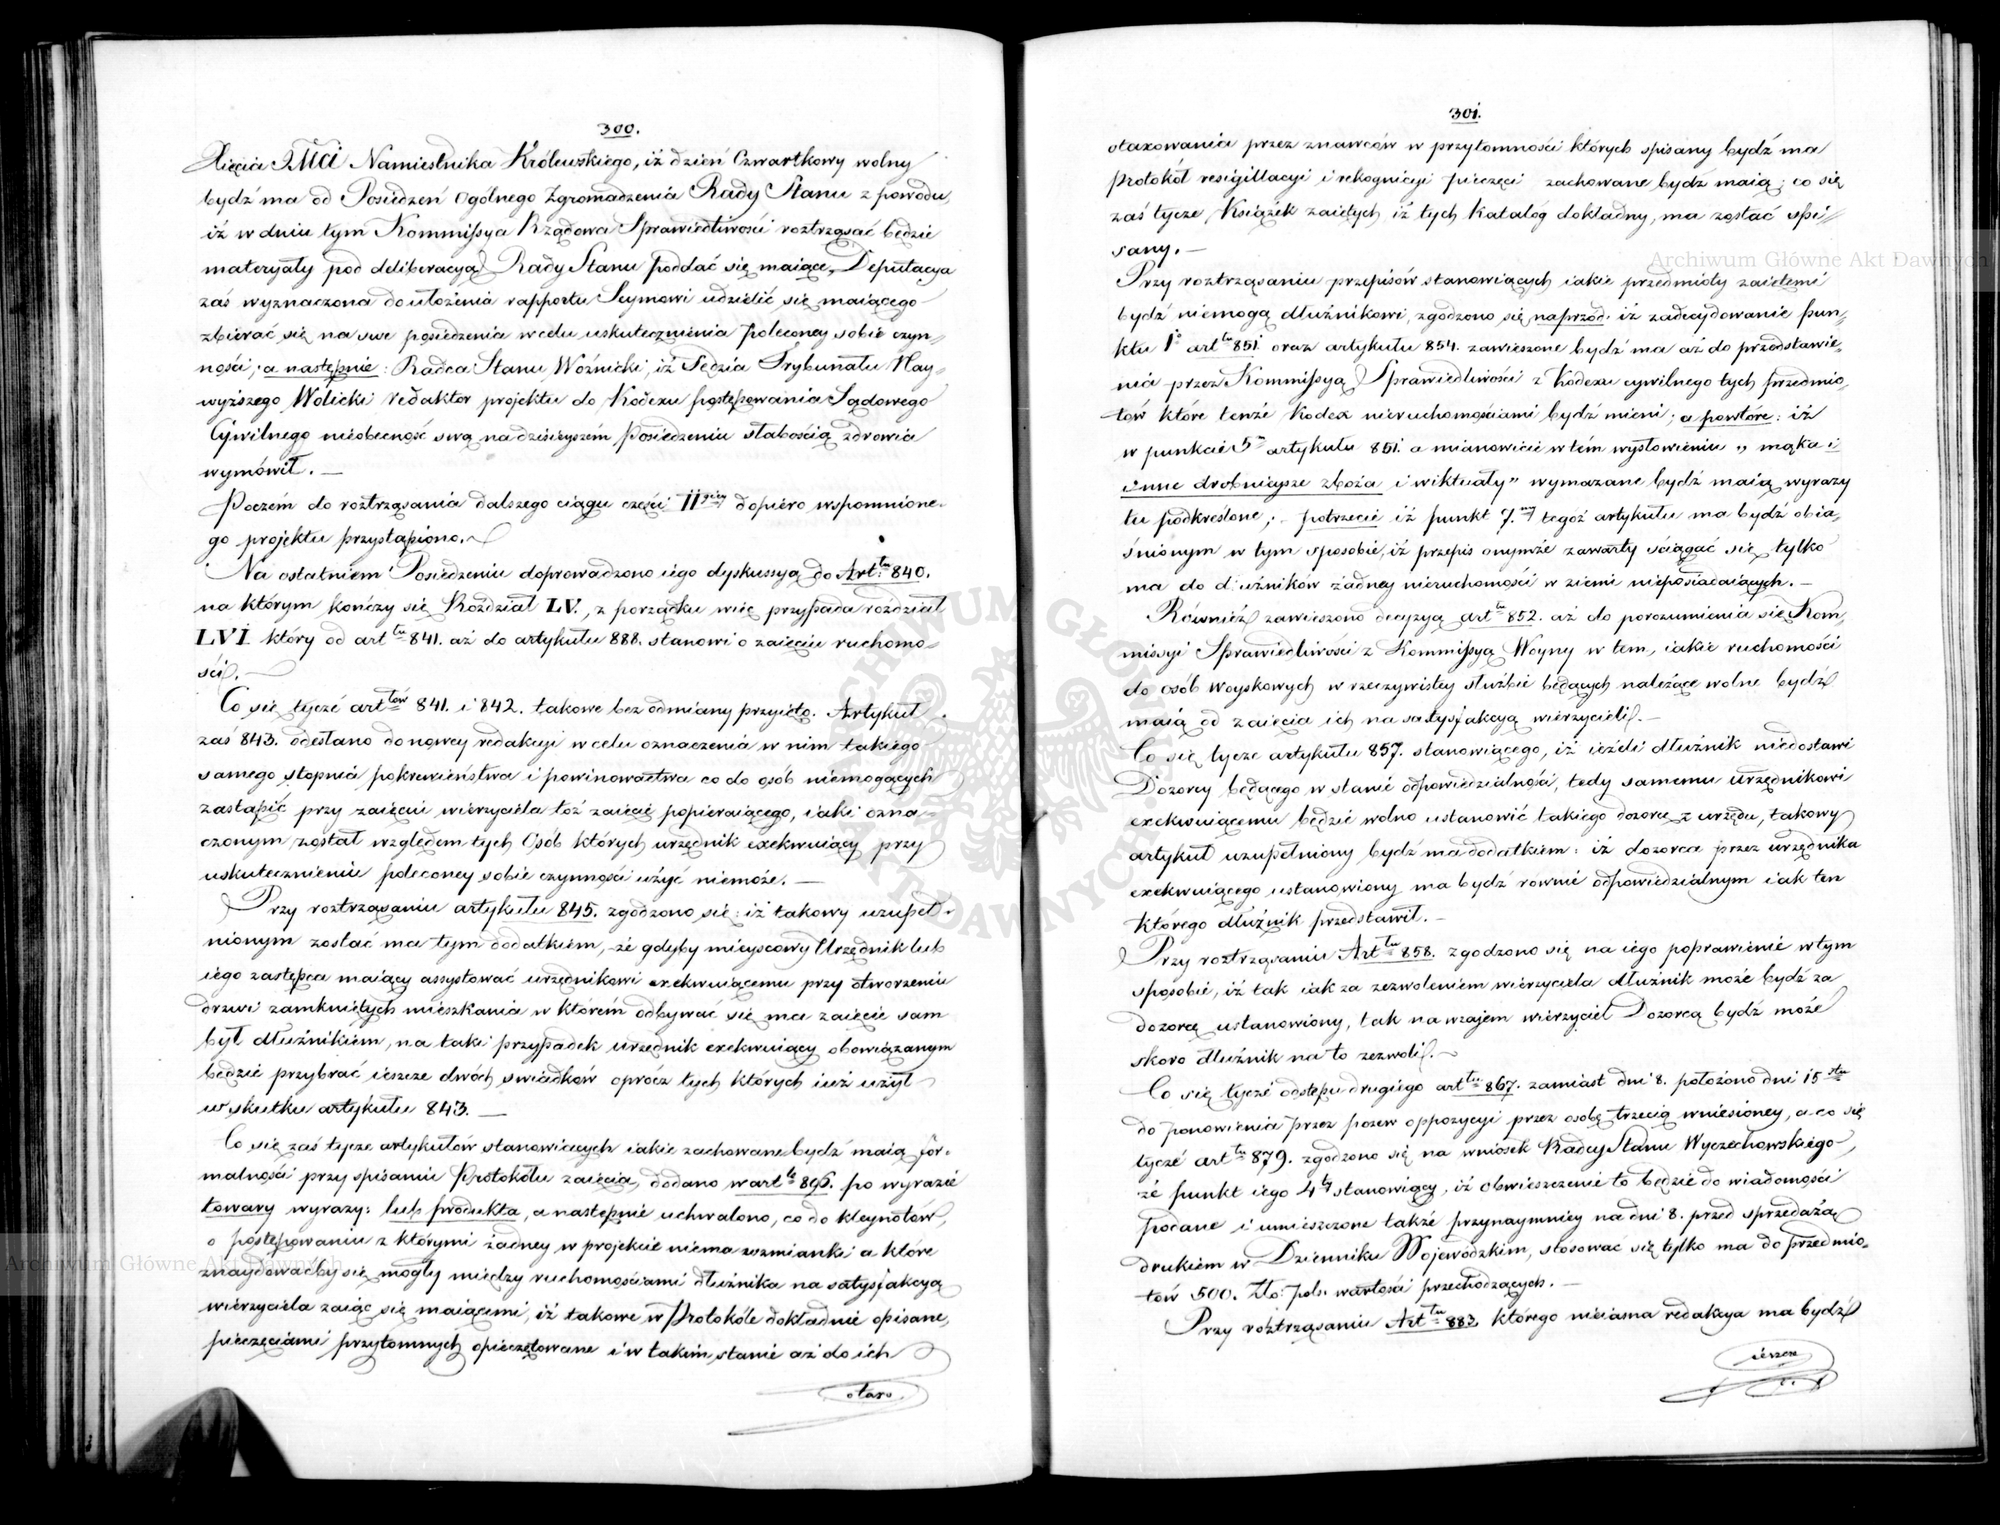 300.
Xięcia JMci Namiestnika Królewskiego, iż dzień Czwartkowy wolny
bydź ma od Posiedzeń Ogólnego Zgromadzenia Rady Stanu z powodu,
iż w dniu tym Kommissya Rządowa Sprawiedliwości roztrząsać będzie
materyały pod deliberacyą Rady Stanu poddać się maiące, Deputacya
zaś wyznaczona do ułożenia rapportu Seymowi udzielić się maiącego
zbierać się na swe posiedzenia w celu uskutecznienia poleconey sobie czyn-
ności; a następnie: Radca Stanu Woźnicki, iż Sędzia Trybunału Nay-
wyższego Wolicki redaktor projektu do Kodexu postępowania Sądowego
Cywilnego nieobecność swą na dzisieyszém Posiedzeniu słabością zdrowia
wymówił. —
Poczém do roztrząsania dalszego ciągu części II giey dopiéro wspomnione-
go projektu przystąpiono.
Na ostatniem Posiedzeniu doprowadzono iego dyskussyą do Art:łu 840.
na którym kończy się Rozdział LV., z porządku więc przypada rozdział
LVI. który od art:łu 841. aż do artykułu 888. stanowi o zaięciu ruchomo-
ści. —
Co się tycze art:łów 841. i 842. takowe bez odmiany przyięto. Artykuł
zaś 843. odesłano do nowey redakcyi w celu oznaczenia w nim takiego
samego stopnia pokrewieństwa i powinowactwa co do osób niemogących
zastąpić przy zaięciu wierzyciela toż zaięcie popieraiącego, iaki ozna-
czonym został względem tych Osób których urzędnik exekwuiący przy
uskutecznieniu poleconey sobie czynności użyć niemoże. —
Przy roztrząsaniu artykułu 845. zgodzono się: iż takowy uzupeł-
nionym zostać ma tym dodatkiem, że gdyby mieyscowy Urzędnik lub
iego zastępca maiący assystować urzędnikowi exekwuiącemu przy otworzeniu
drzwi zamkniętych mieszkania w którém odbywać się ma zaięcie sam
był dłużnikiem, na taki przypadek urzędnik exekwuiący obowiązanym
będzie przybrać ieszcze dwóch świadków oprócz tych których iuż użył
w skutku artykułu 843. —
Co się zaś tycze artykułów stanowiących iakie zachowane bydź maią for-
malności przy spisaniu Protokółu zaięcia, dodano w art:łe 846. po wyrazie
towary wyrazy: lub produkta, a następnie uchwalono, co do kleynotów,
o postępowaniu z którymi żadney w projekcie niema wzmianki a które
znaydowaćby się mogły między ruchomościami dłużnika na satysfakcyą
wierzyciela zaiąc się maiącemi, iż takowe w Protokóle dokładnie opisane,
pieczęciami przytomnych opieczętowane i w takim stanie aż do ich
otaxo
301.
otaxowania przez znawców w przytomności których spisany bydź ma
protokół resigillacyi i rekognicyi pieczęci zachowane bydź maią; co się
zaś tycze Książek zaiętych, iż tych katalóg dokładny, ma zostać spi-
sany. —
Przy roztrząsaniu przepisów stanowiących iakie przedmioty zaiętemi
bydź niemogą dłużnikowi, zgodzono się naprzód: iż zadecydowanie pun-
ktu 1° art:łu 851. oraz artykułu 854. zawieszone bydź ma aż do przedstawie-
nia przez Kommissyą Sprawiedliwości z Kodexu cywilnego tych przedmio-
tów które tenże Kodex nieruchomościami bydź mieni; a powtóre: iż
w punkcie 5m artykułu 851. a mianowicie w tém wysłowieniu „mąka i
inne drobnieysze zboża i wiktuały" wymazane bydź maią wyrazy
tu podkreślone; potrzecie iż punkt 7.my tegoż artykułu ma bydź obia-
śnionym w tym sposobie, iż przepis onymże zawarty ściągać się tylko
ma do dłużników żadney nieruchomości w ziemi nieposiadaiących. —
Również zawieszono decyzyą art:łu 852. aż do porozumienia się Kom-
missyi Sprawiedliwości z Kommissyą Woyny w tem, iakie ruchomości
do osób woyskowych w rzeczywistey służbie będących należące wolne bydź
maią od zaięcia ich na satysfakcyą wierzycieli. —
Co się tycze artykułu 857. stanowiącego, iż ieżeli dłużnik niedostawi
Dozorcy będącego w stanie odpowiedzialności, tedy samemu urzędnikowi
exekwuiącemu będzie wolno ustanowić takiego dozorcę z urzędu, takowy
artykuł uzupełniony bydź ma dodatkiem: iż dozorca przez urzędnika
exekwuiącego ustanowiony ma bydź rownie odpowiedzialnym iak ten
którego dłużnik przedstawił. —
Przy roztrząsaniu Art:łu 858. zgodzono się na iego poprawienie w tym
sposobie, iż tak iak za zezwoleniem wierzyciela dłużnik może bydź za
dozorcę ustanowiony, tak nawzajem wierzyciel Dozorcą bydź może
skoro dłużnik na to zezwoli. —
Co się tycze odstępu drugiego art:łu 867. zamiast dni 8. położono dni 15stu
do ponowienia przez pozew oppozycyi przez osobę trzecią wniesioney, a co się
tycze art:łu 879. zgodzono się na wniosek Radcy Stanu Wyczechowskiego,
że punkt iego 4ty stanowiący, iż obwieszczenie to będzie do wiadomości
podane i umieszczone także przynaymniey na dni 8. przed sprzedażą
drukiem w Dzienniku Wojewódzkim, stosować się tylko ma do przedmio-
tów 500. Zło: pols: wartości przechodzących. —
Przy roztrząsaniu Art:łu 883. którego nieiasna redakcya ma bydź
ieszcze
Archiwum Główne Akt Dawnych
Archiwum Główne Akt Dawnych
ARCHIWUM GŁÓWNE AKT DAWNYCH